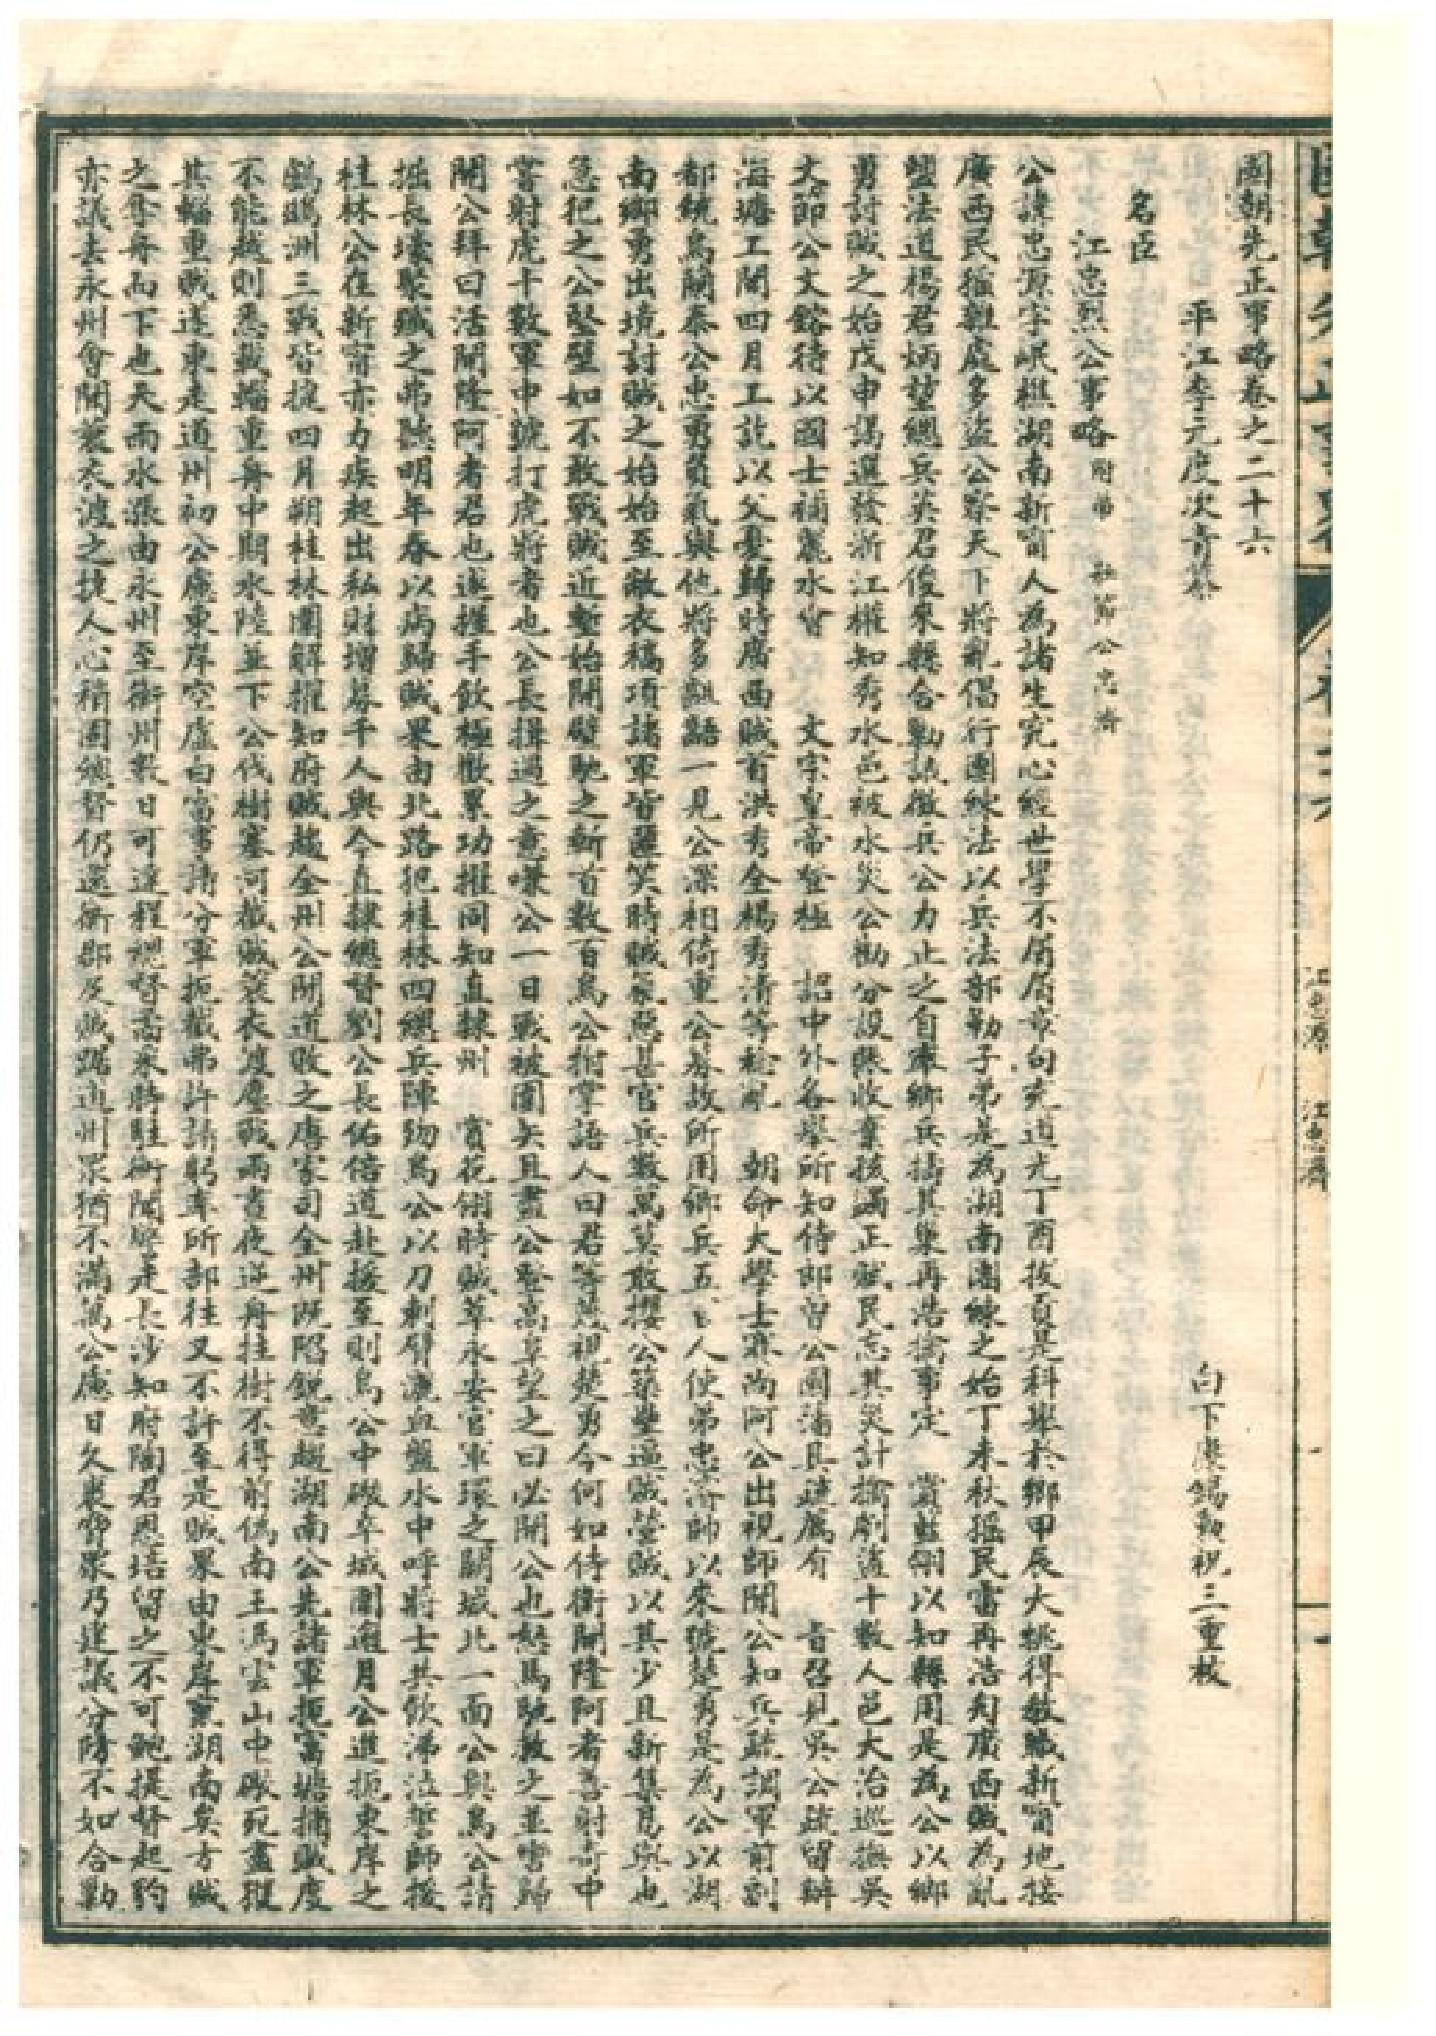 國朝先正事略卷之二十六
平江李元度次青纂 白下康錫勳祝三重校
名臣
江忠烈公事略 附弟 壯節公忠濟
公諱忠源字岷樵湖南新甯人為諸生究心經世學不屑屑章句充道光丁酉拔貢是科舉於鄉甲辰大挑得教職新甯地接
廣西民猺雜處多盜公察天下將亂倡行團練法以兵法部勒子弟是為湖南團練之始丁未秋猺民雷再浩勾廣西賊為亂
鹽法道楊君炳堃總兵英君俊來縣合勦議徵兵公力止之自率鄉兵擣其巢再浩擒事定 賞藍翎以知縣用是為公以鄉
勇討賊之始戊申謁選發浙江權知秀水邑被水災公勘分設賑收棄孩遏正賦民忘其災計擒劇盜十數人邑大治巡撫吳
文節公文鎔待以國士補麗水會 文宗皇帝登極 詔中外各舉所知侍郎曾公國藩具疏薦有 旨召見吳公疏留辦
海塘工閱四月工訖以父憂歸時廣西賊首洪秀全楊秀清等稔亂 朝命大學士賽尚阿公出視師聞公知兵疏調軍前副
都統烏蘭泰公忠勇負氣與他將多齟齬一見公深相倚重公募故所用鄉兵五百人使弟忠濟帥以來號楚勇是為公以湖
南鄉勇出境討賊之始始至敝衣稿項諸軍皆匿笑時賊氛惡甚官兵數萬莫敢攖公築壘逼賊營賊以其少且新集易與也
急犯之公堅壁如不敢戰賊近塹始開壁馳之斬首數百烏公撫掌語人曰君等蔑視楚勇今何如侍衛開隆阿者善射奇中
嘗射虎十數軍中號打虎將者也公長揖過之意嗛公一日戰被圍矢且盡公登高阜望之曰必開公也怒馬馳救之並轡歸
開公拜曰活開隆阿者君也遂握手飲極懽累功擢同知直隸州 賞花翎時賊萃永安官軍環之闕城北一面公與烏公請
掘長壕聚殲之弗聽明年春以病歸賊果由北路犯桂林四總兵陣歿烏公以刀刺臂瀝血盤水中呼將士共飲涕泣誓師援
桂林公在新甯亦力疾起出私財增募千人與今直隸總督劉公長佑倍道赴援至則烏公中礮卒城圍逾月公進扼東岸之
鸕鶿洲三戰皆捷四月朔桂林圍解擢知府賊趨全州公間道敗之唐家司全州既陷銳意趨湖南公先諸軍扼蓑衣渡捕賊度
不能越則悉載輜重舟中期水陸並下公伐樹塞河截賊蓑衣渡鏖戰兩晝夜逆舟挂樹不得前偽南王馮雲山中礮死盡獲
其輜重賊遂東走道州初公慮東岸空虛白當事請分軍扼截弗許請躬率所部往又不許至是賊果由東岸竄湖南矣方賊
之奪舟而下也天雨水漲由永州至衡州數日可達程裔采時駐衡聞警走長沙知府陶君恩培留之不可鮑提督起豹
亦議去永州會聞蓑衣渡之捷人心稍固總督仍還衡郡及賊踞道州眾猶不滿萬公慮日久裹脅眾乃建議分防不如合勦